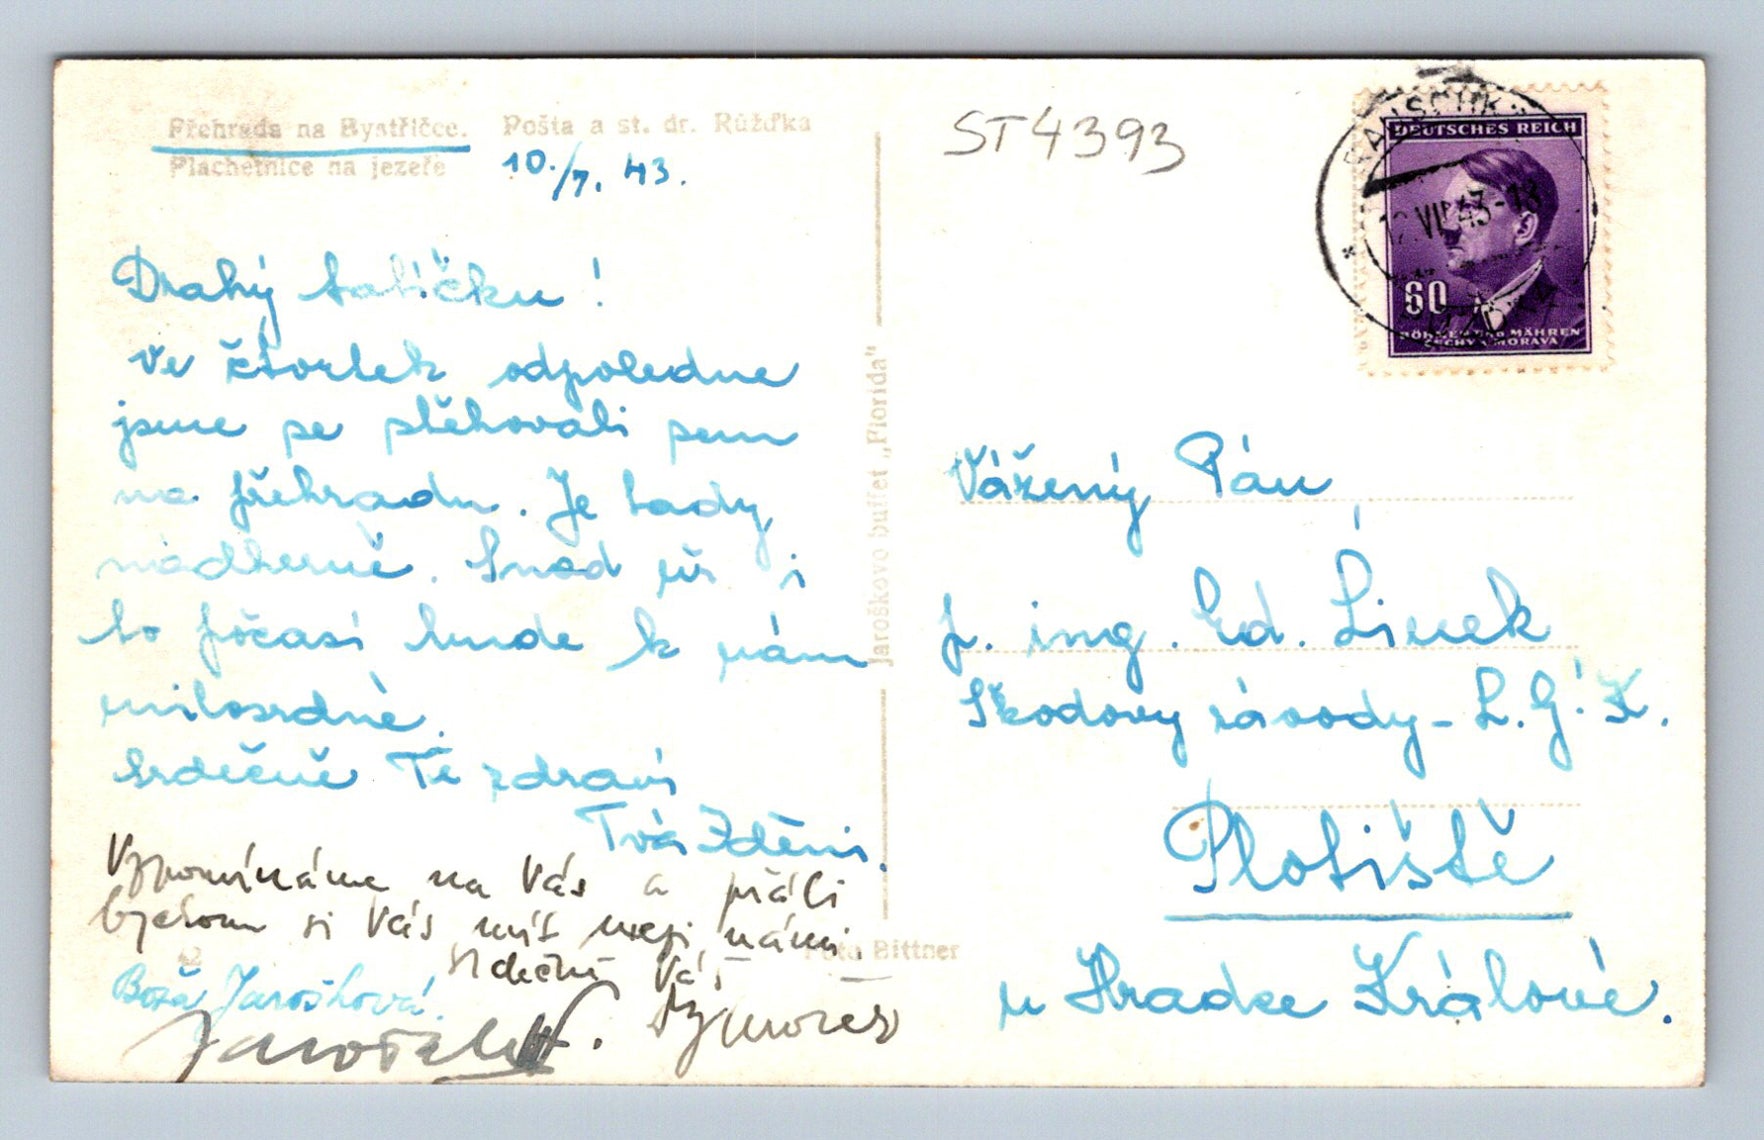 Přehrada na Bystřičce. Pošta a st. dr. Růžďka
Plachetnice na jezeře 10./7. 43.
Drahý tatíčku!
Ve čtvrtek odpoledne
jsme se stěhovali sem
na přehradu. Je tady
nádherně. Snad již i
to počasí bude k nám
milosrdné.
Srdečně Tě zdraví
Tvá Zdeni.
Vzpomínáme na Vás a přáli
bychom si Vás mít mezi námi
srdečně Váš
Boža Jarošková.
Foto Bittner
Jaroškovo buffet „Florida"
ST4393
DEUTSCHES REICH
60
BÖHMEN UND MÄHREN
ČECHY A MORAVA
VII 43-18
Vážený Pán
p. ing. Ed. Linek
Škodovy závody - L.G.K.
Plotiště
u Hradce Králové.